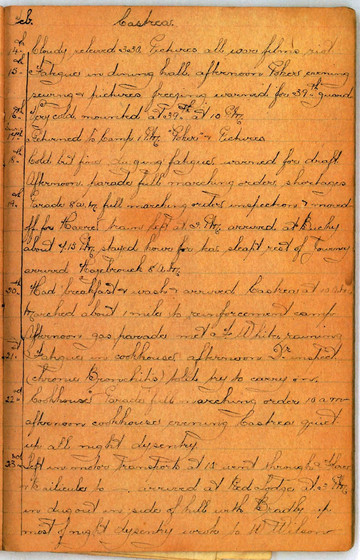 Feb. Caestrea
14th Cloudy relieved 3.30 Pictures all war films rest
15th Fatigues in dining hall afternoon Poker evening
pictures freezing warned for 39th guard
16th Very cold mounted at 39th at 10 A.M.
17th Returned to Camp 1 P.M. "Poker" & Pictures
18th Cold but fine digging fatigues warned for draft
Afternoon parade full marching orders, shortages
19th Parade 8 a.m. full marching orders inspection & moved
off for Havre train left at arrived at Buchy
about 4.15 P.M. stayed hours for tea slept rest of journey
arrived Hazebrouck 8 A.M.
20th Had breakfast & wash & arrived Caestrea at
Marched about 1 mile to reinforcement camp
Afternoon gas parades met White raining
21st Fatigues in cookhouse afternoon Dr.
(Chronic Bronchitis) told try to carry on.
22nd Cookhouse Parade full marching orders 10 a.m.
afternoon cookhouse evening Caestrea quiet
up all night dysentry
23rd Left in motor transports at 12 went through
to arrived at Red Lodge at
in dugout in side of hill with Bradley up
most of night dysentry wrote to W Wilson